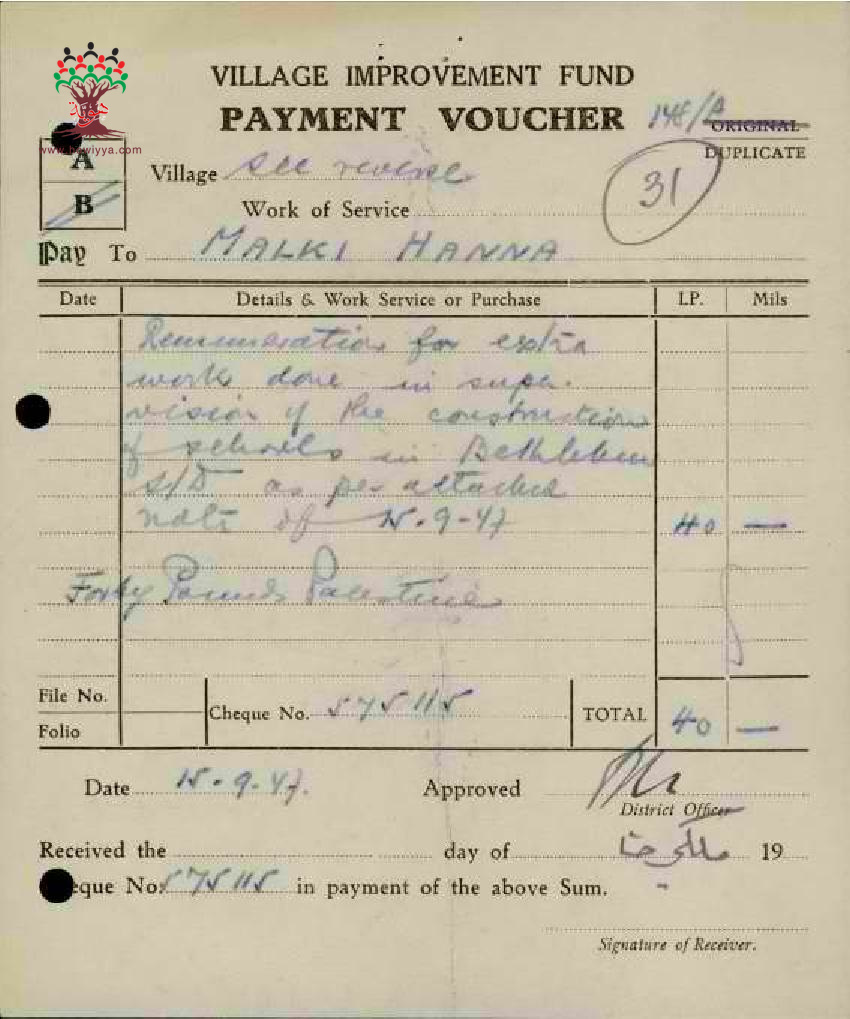 VILLAGE IMPROVEMENT FUND
PAYMENT VOUCHER 148/A ORIGINAL
DUPLICATE
www.howiyya.com
A
B
Village see reverse
31
Work of Service
Pay To MALKI HANNA
Date Details & Work Service or Purchase LP. Mils
Remuneration for extra
work done in super-
vision of the construction
of schools in Bethlehem
S/D as per attached
note of 15.9.47 40 —
Forty Pounds Palestine
File No.
Folio
Cheque No. 575115 TOTAL 40 —
Date 15.9.47. Approved
District Officer
Received the day of ملكي حنا 19
eque No. 575115 in payment of the above Sum.
Signature of Receiver.